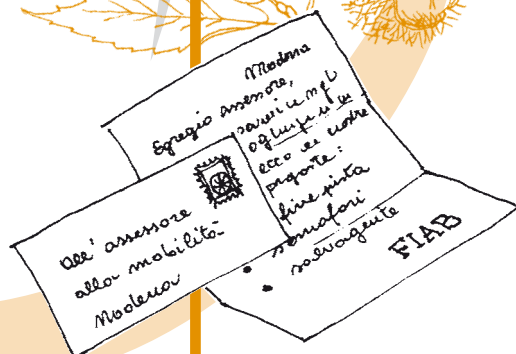 Modena
Egregio assessore,
ecco le nostre
proposte:
fine pista
semafori
salvagente
FIAB
All' assessore
alla mobilità
Modena